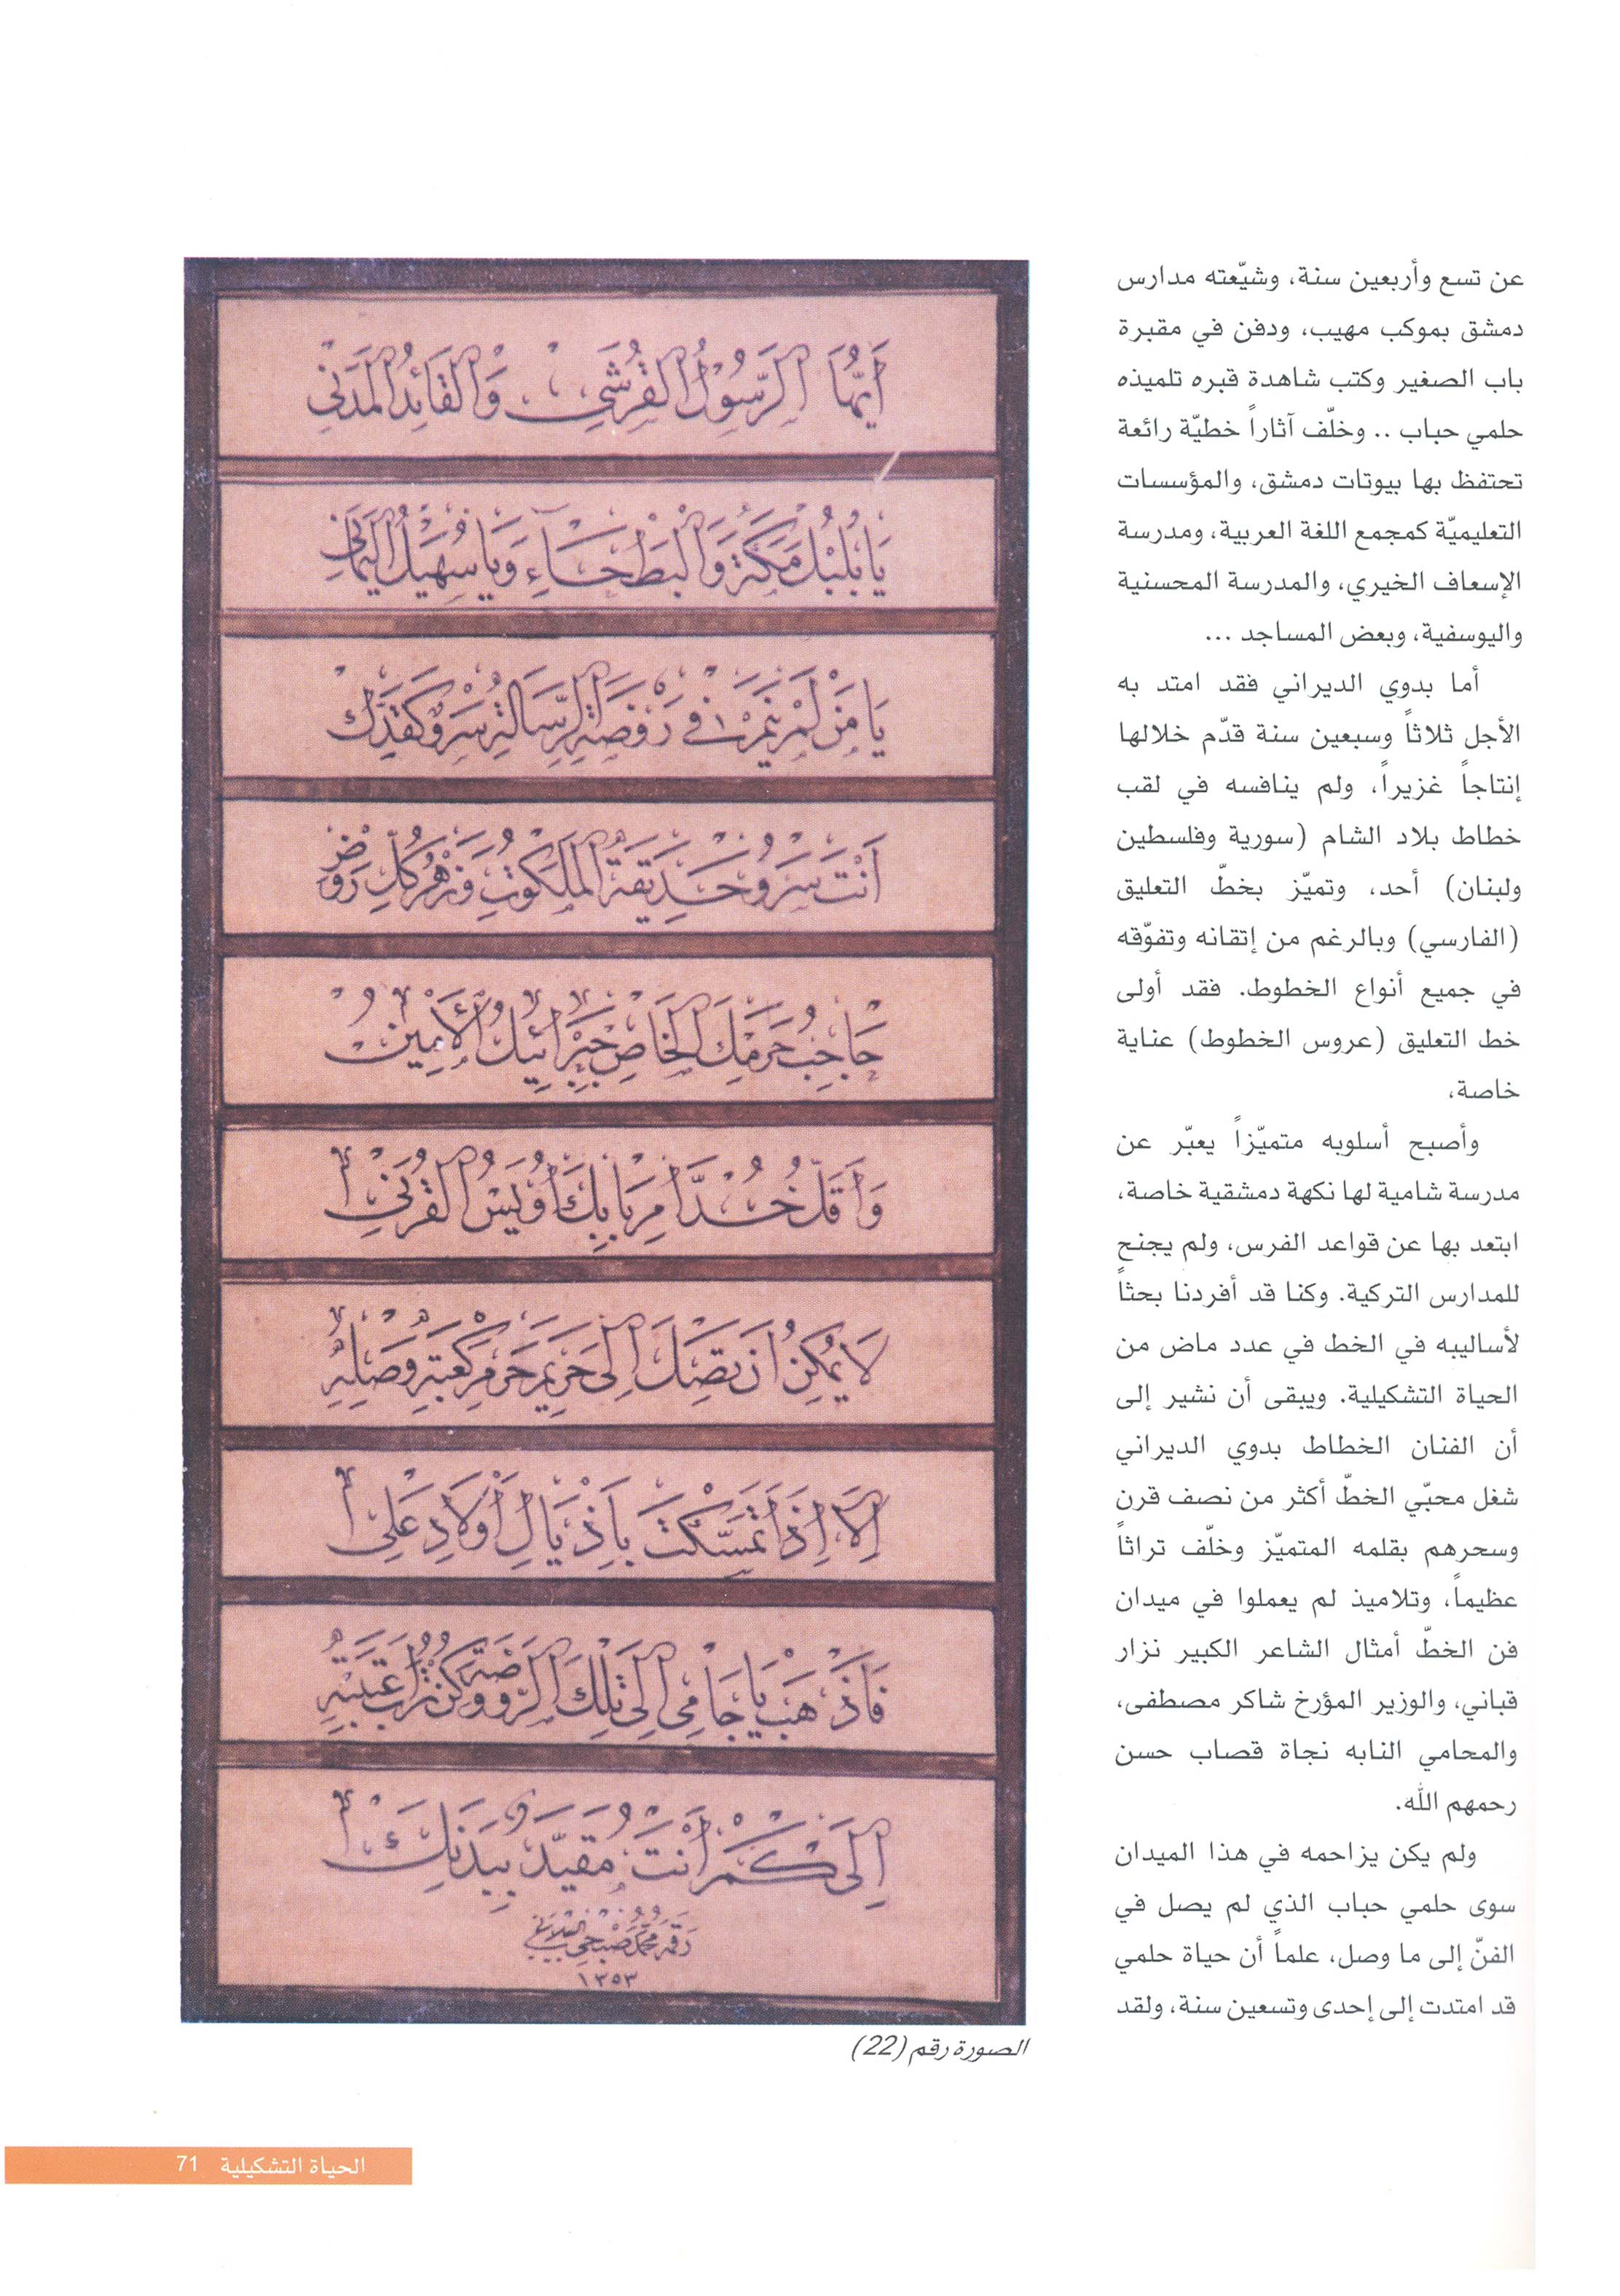 عن تسع وأربعين سنة، وشيّعته مدارس
دمشق بموكب مهيب، ودفن في مقبرة
باب الصغير وكتب شاهدة قبره تلميذه
حلمي حباب .. وخلّف آثاراً خطيّة رائعة
تحتفظ بها بيوتات دمشق، والمؤسسات
التعليميّة كمجمع اللغة العربية، ومدرسة
الإسعاف الخيري، والمدرسة المحسنية
واليوسفية، وبعض المساجد ...
أما بدوي الديراني فقد امتد به
الأجل ثلاثاً وسبعين سنة قدّم خلالها
إنتاجاً غزيراً، ولم ينافسه في لقب
خطاط بلاد الشام (سورية وفلسطين
ولبنان) أحد، وتميّز بخطّ التعليق
(الفارسي) وبالرغم من إتقانه وتفوّقه
في جميع أنواع الخطوط. فقد أولى
خط التعليق (عروس الخطوط) عناية
خاصة،
وأصبح أسلوبه متميّزاً يعبّر عن
مدرسة شامية لها نكهة دمشقية خاصة،
ابتعد بها عن قواعد الفرس، ولم يجنح
للمدارس التركية. وكنا قد أفردنا بحثاً
لأساليبه في الخط في عدد ماض من
الحياة التشكيلية. ويبقى أن نشير إلى
أن الفنان الخطاط بدوي الديراني
شغل محبّي الخطّ أكثر من نصف قرن
وسحرهم بقلمه المتميّز وخلّف تراثاً
عظيماً، وتلاميذ لم يعملوا في ميدان
فن الخطّ أمثال الشاعر الكبير نزار
قباني، والوزير المؤرخ شاكر مصطفى،
والمحامي النابه نجاة قصاب حسن
رحمهم الله.
ولم يكن يزاحمه في هذا الميدان
سوى حلمي حباب الذي لم يصل في
الفنّ إلى ما وصل، علماً أن حياة حلمي
قد امتدت إلى إحدى وتسعين سنة، ولقد
أَيُّهَا الرَّسُولُ الْقُرَشِي وَالْقَائِدُ الْمَدَنِي
يَا بُلْبُلَ مَكَّةَ وَالْبَطْحَاءِ وَيَا سُهَيْلُ الْيَمَانِي
يَا مَنْ لَمْ يَنْمُ فِي رَوْضَةِ الرِّسَالَةِ سَرْوٌ كَقَدِّكَ
أَنْتَ سَرْوُ حَدِيقَةِ الْمَلَكُوتِ وَزَهْرُ كُلِّ رَوْضٍ
حَاجِبُ حَرَمِكَ الْخَاصِ جَبْرَائِيلُ الْأَمِينُ
وَأَقَلُّ خُدَّامِ بَابِكَ أُوَيْسُ الْقَرَنِي
لَا يُمْكِنُ أَنْ تَصِلَ إِلَى حَرِيمِ حَرَمِ كَعْبَةِ وَصْلِهِ
إِلَّا إِذَا تَمَسَّكْتَ بِأَذْيَالِ أَوْلَادِ عَلِي
فَاذْهَبْ يَا جَامِي إِلَى تِلْكَ الرَّوْضَةِ وَكُنْ تُرَابَ عَتَبَتِهِ
إِلَى كَمْ أَنْتَ مُقَيَّدٌ بِبَدَنِكَ
رقمه محمد صبحي البيلاني
١٣٥٣
الصورة رقم (22)
الحياة التشكيلية 71